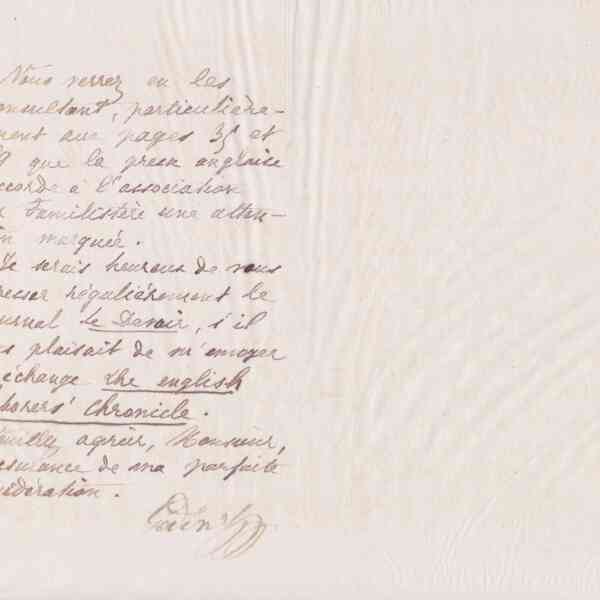 Vous verrez en les
onsultant, particulière-
ment aux pages 35 et
9 que la presse anglaise
ccorde à l'association
u Familistère une atten-
on marquée.
Je serais heureux de vous
resser régulièrement le
urnal Le Devoir, s'il
us plaisait de m'envoyer
échange The english
borers' Chronicle.
euillez agréer, Monsieur,
ssurance de ma parfaite
sidération.
Godin